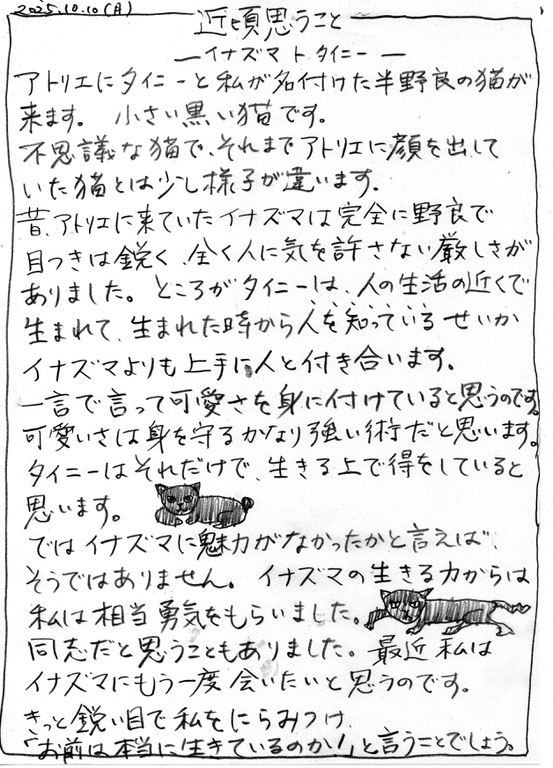 2025.10.10(月)
近頃思うこと
―イナズマ ト タイニー―
アトリエにタイニーと私が名付けた半野良の猫が
来ます。 小さい黒い猫です。
不思議な猫で、それまでアトリエに顔を出して
いた猫とは少し様子が違います。
昔、アトリエに来ていたイナズマは完全に野良で
目つきは鋭く、全く人に気を許さない厳しさが
ありました。ところがタイニーは、人の生活の近くで
生まれて、生まれた時から人を知っているせいか
イナズマよりも上手に人と付き合います。
一言で言って可愛さを身に付けていると思うのです。
可愛いさは身を守るかなり強い術だと思います。
タイニーはそれだけで、生きる上で得をしていると
思います。
ではイナズマに魅力がなかったかと言えば、
そうではありません。 イナズマの生きる力からは
私は相当勇気をもらいました。
同志だと思うこともありました。最近私は
イナズマにもう一度会いたいと思うのです。
きっと鋭い目で私をにらみつけ、
「お前は本当に生きているのか!」と言うことでしょう。